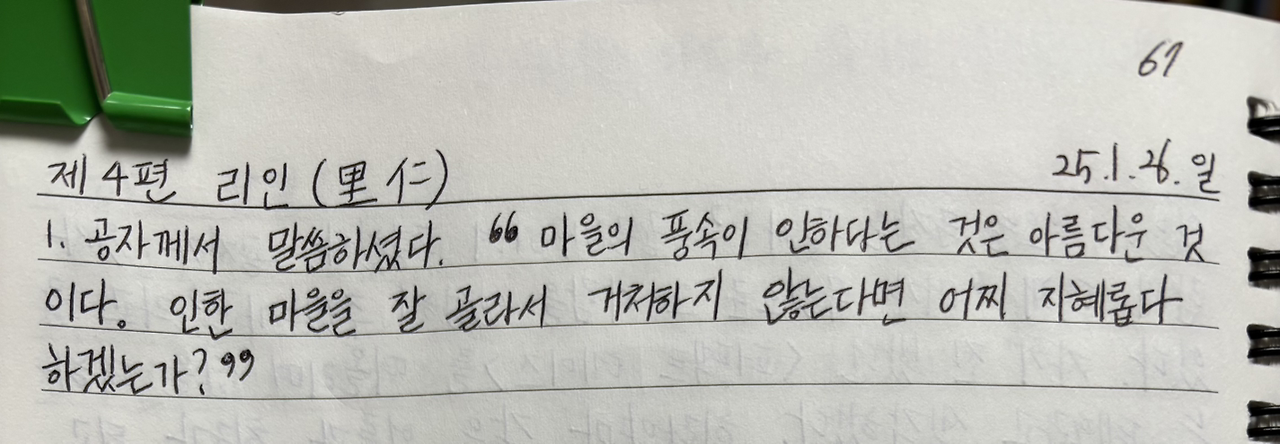 67
제 4편 리인 (里仁) 25.1.26. 일
1. 공자께서 말씀하셨다. “마을의 풍속이 인하다는 것은 아름다운 것
이다. 인한 마을을 잘 골라서 거처하지 않는다면 어찌 지혜롭다
하겠는가?”